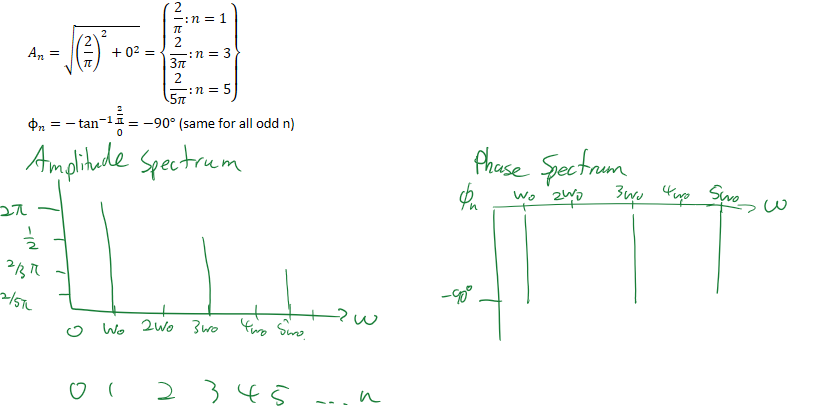 Aₙ = √((2/π)² + 0²) = { 2/π : n = 1
2/3π : n = 3
2/5π : n = 5 }
ϕₙ = − tan⁻¹ (2/π)/0 = −90° (same for all odd n)
Amplitude Spectrum
2π
1/2
2/3π
2/5π
0 w₀ 2w₀ 3w₀ 4w₀ 5w₀ w
0 1 2 3 4 5 ... n
Phase Spectrum
ϕₙ w₀ 2w₀ 3w₀ 4w₀ 5w₀ w
-90°